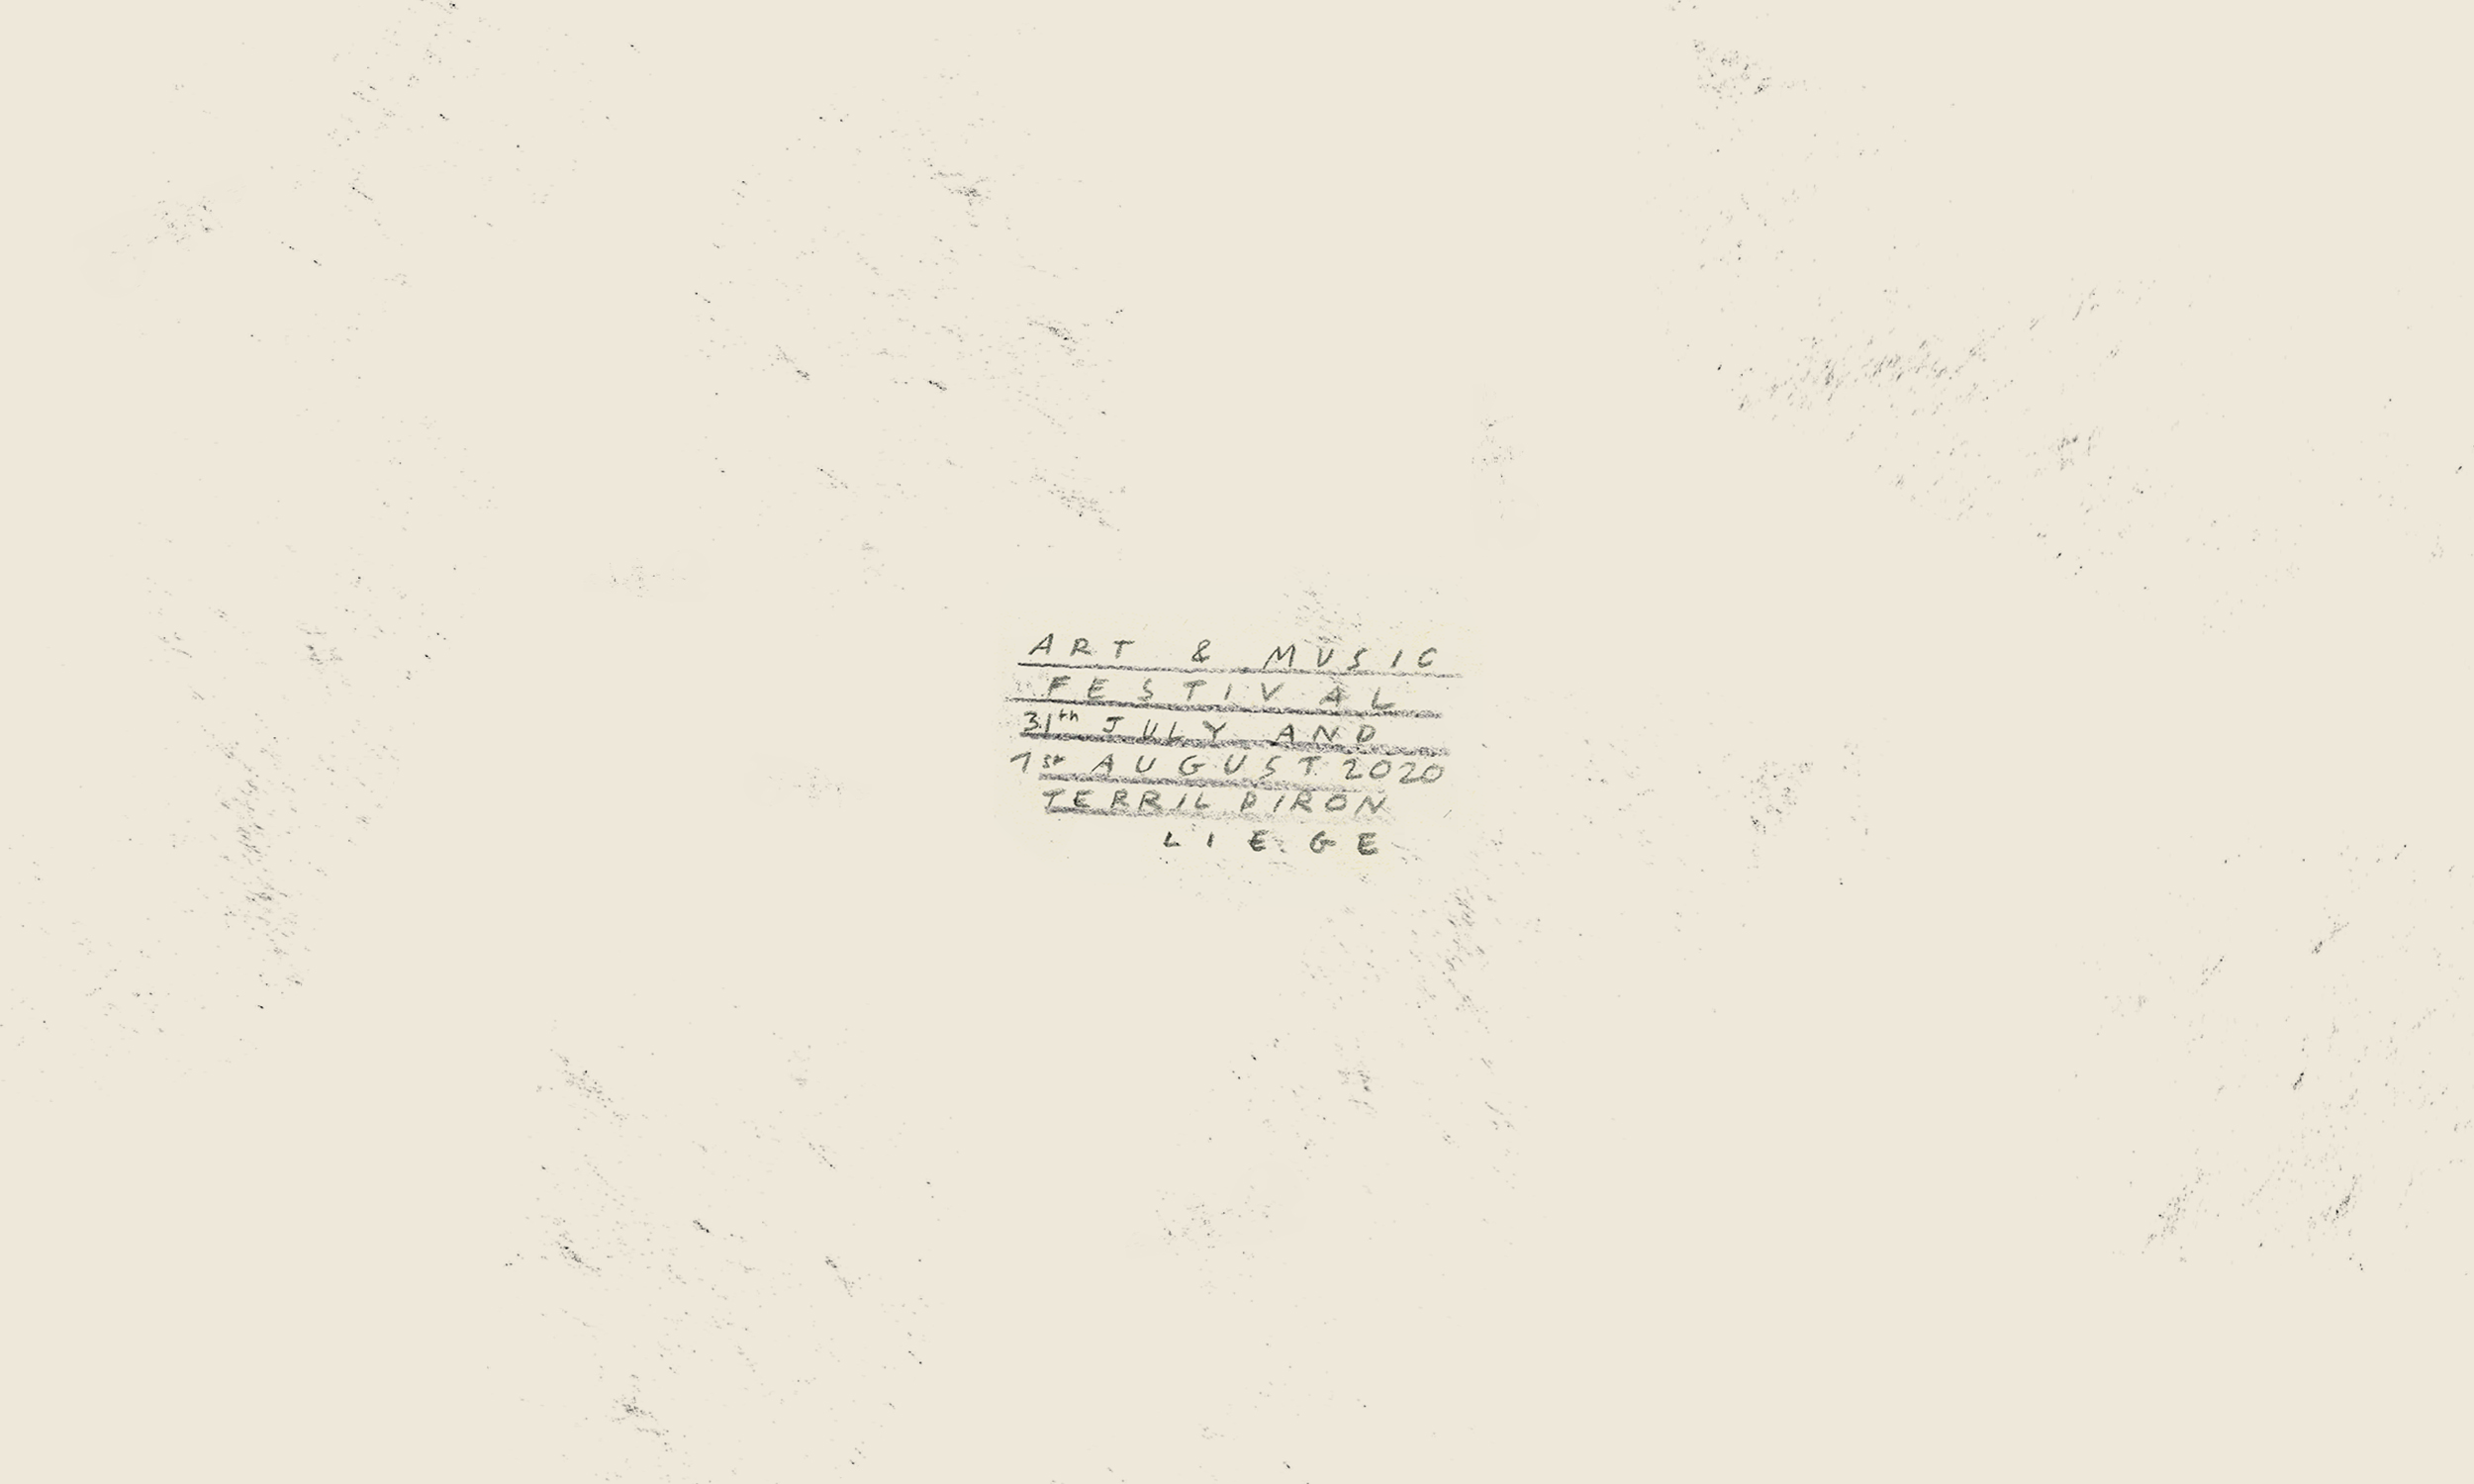 ART & MUSIC
FESTIVAL
31th JULY AND
1st AUGUST 2020
TERRIL PIRON
LIEGE